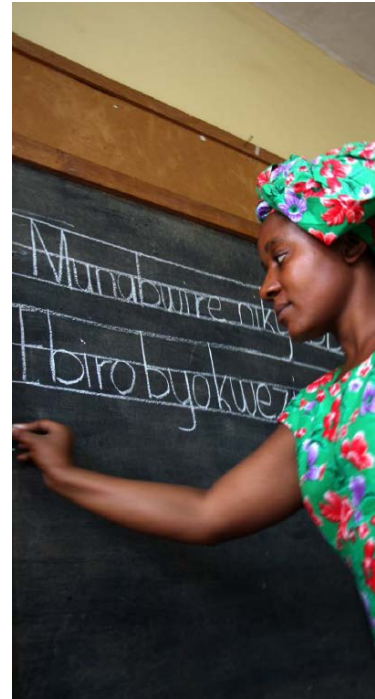 Munabwire niky
Ebiro byokwezi